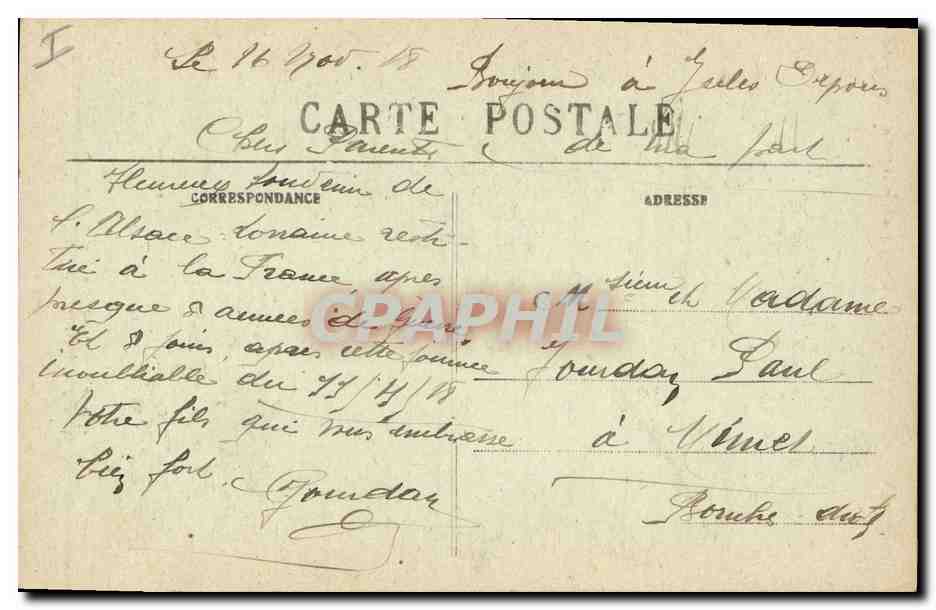 I
Le 16 Nov. 18
Bonjour à Jules
CARTE POSTALE
Chers Parents
de ma part
CORRESPONDANCE
ADRESSE
de
l'Alsace Lorraine resti-
tuée à la France, après
presque 5 années de guerre
Et 8 jours, après cette journée
inoubliable du 11/11/18
Votre fils qui vous embrasse
bien fort.
Jourdan
Monsieur et Madame
Jourdan Paul
à Mimet
Bouches du R
CPAPHIL